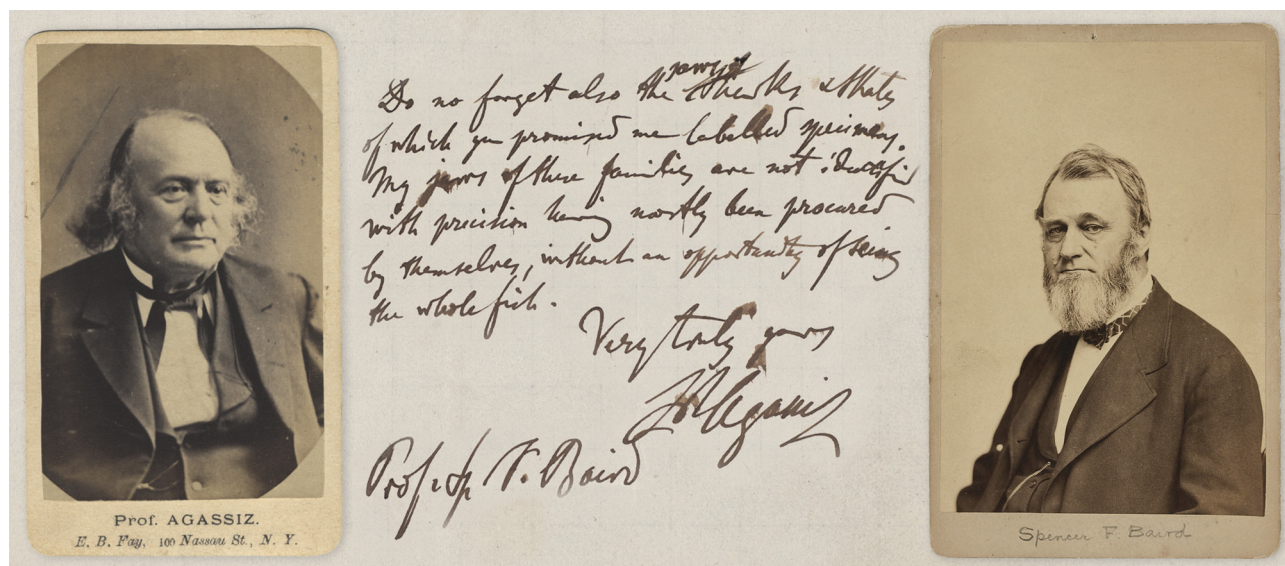 Prof. AGASSIZ.
E. B. Fay, 109 Nassau St., N. Y.
jaws of
Do no forget also the Sharks & skates
of which you promised me labelled specimens.
My jaws of these families are not identified
with precision having mostly been procured
by themselves, without an opportunity of seeing
the whole fish.
Very truly yours
L Agassiz
Prof. Sp. F. Baird
Spencer F. Baird